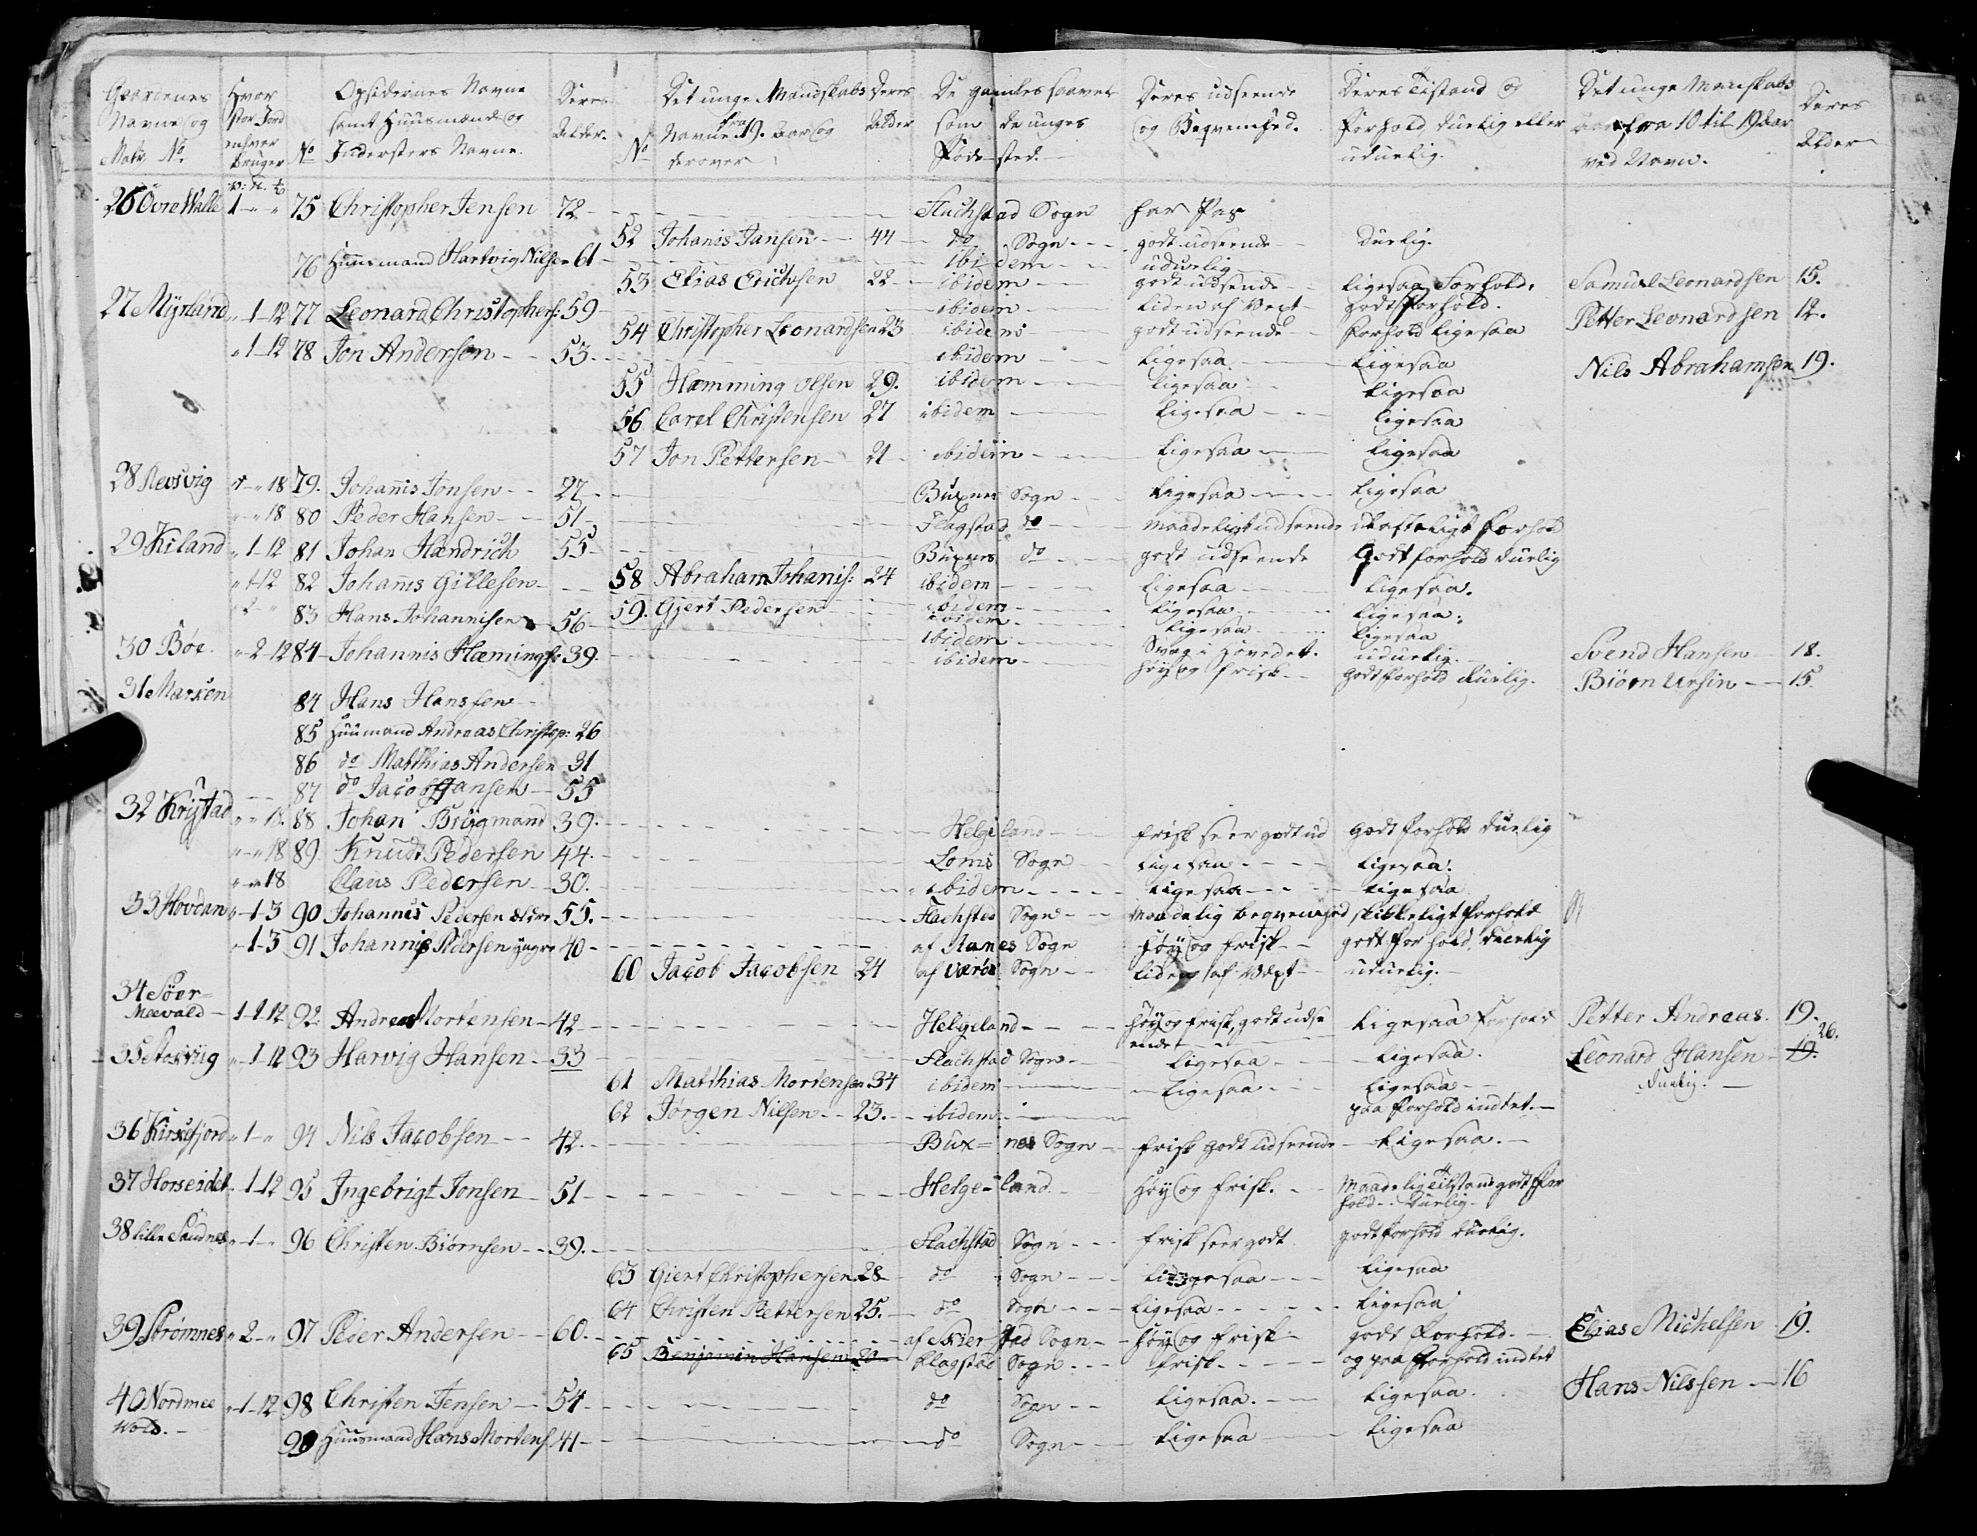 Gaardenes Navne og Matr. No. | Hvor stor Jord enhver bruger | No | Opsidernes Navne samt Huusmænds og Indersters Navne. | Deres Alder. | No | Det unge Mandskabs Navne fra 19. Aar og derover | Deres Alder | De gamles saavel som de unges Føde-sted. | Deres udseende og Beqvemhed. | Deres Tilstand og Forhold, duelig eller uduelig. | Det unge Manskabs fra 10 til 19 Aar ved Navn. | Deres Alder
26 Øvre Walle 1 - " - " 75 Christopher Jensen 72 - Flachstad Sogn har Pas
52 Johanis Jansen 44 do Sogn godt udseende duelig.
76 Huusmand Hartvig Nilsen 61 ibidem uduelig
53 Elias Erichsen 22 ibidem godt udseende ligesaa Forhold. Samuel Leonardsen 15.
27 Myrland " 1-12 77 Leonard Christophers: 59 ibidem liden af Vext godt Forhold. Petter Leonardsen 12.
54 Christopher Leonardsen 23 ibidem godt udseende Forhold ligesaa
" 1-12 78 Jon Andersen 53. ibidem Ligesaa Ligesaa Nils Abrahamsen 19.
55 Hemming Olsen 29. ibidem Ligesaa Ligesaa
56 Carel Christensen 27 ibidem Ligesaa Ligesaa
57 Jon Pettersen 21 ibidem Ligesaa Ligesaa
28 Nevsvig " - " 18 79. Johannis Jonsen 27 Buxnes Sogn Ligesaa Ligesaa
" - " 18 80 Peder Hansen 51 Flagstad do maadeligt udseende Forhold
29 Kiland " 1-12 81 Johan Hændrich 55 Buxnes do godt udseende Godt forhold duelig
" 1-12 82 Johannis Gillesen 58 Abraham Johanis: 24 ibidem Ligesaa Ligesaa.
" 2 - " 83 Hans Johannisen 56 59. Gjert Pedersen ibidem Ligesaa Ligesaa.
ibidem Ligesaa Ligesaa
30 Bøe. " 2-12 84 Johannis Hæmings: 39. ibidem Svag i Hovedet. uduelig. Svend Hansen 18.
ibidem høy og frisk godt forhold duelig. Biørn Ursin 15.
31 Marken 84 Hans Hanssen
85 Huusmand Andreas Christop: 26
86 do Matthias Andersen 31
87 do Jacob Hansen 55
32 Kristad " " 18. 88 Johan Brügmand 39. Helgeland frisk seer godt ud godt forhold duelig
" " 18 89 Knud Pedersen 44. Loms Sogn Ligesaa Ligesaa.
" " 18 Claus Pedersen 30. ibidem Ligesaa Ligesaa
33 Hovdan " 1-3 90 Johannis Pedersen ældre 55. Flachsted Sogn maadelig beqvemhed skikkeligt Forhold
" 1-3 91 Johannis Pedersen yngre 40 af Næmes Sogn høy og frisk godt forhold, duelig
60 Jacob Jacobsen 24 af Værøe Sogn liden af Vext uduelig.
34 Søer=
Meevald 1-1-12 92. Andreas Mortensen 42 Helgeland høy og frisk, godt udse Ligesaa Forhold Petter Andreas. 19.
endet 26.
35 Røsvig " 1-12 93 Harvig Hansen 33 Flachstad Sogn Ligesaa Ligesaa. Leonard Hansen 19.
61 Matthias Mortensen 34 ibidem Ligesaa Ligesaa duelig.
62 Jørgen Nilsen 23. ibidem paa forhold indtet.
36 Kirkefjord " 1 - " 94 Nils Jacobsen 42. Bux= nes Sogn frisk godt udseende Ligesaa.
37 Horseidet. 1-12 95 Ingebrigt Jonsen 51 Helge= land. høy og frisk. maadelig tilstand godt For
hold. duelig.
38 lille Sandnes " 1 - " 96 Christen Biørnsen 39. Flachstad Sogn frisk seer godt godt forhold duelig.
63 Giert Christophersen 28 do Sogn Ligesaa Ligesaa
64 Christen Pettersen 25. do Sogn Ligesaa Ligesaa
39 Strømnes " 2 - " 97 Peder Andersen 60. af Skier stad Sogn høy og frisk godt Forhold. Elias Michelsen 19.
65 Benjamin Hansen 20 Flagstad Sogn frisk og paa Forhold indtet
Hans Nilssen 16
40 Nordmee " 1-12 98 Christen Jensen 54 do Sogn Ligesaa. Ligesaa.
wold. 99 Huusmand Hans Mortens: 41 do Sogn Ligesaa Ligesaa